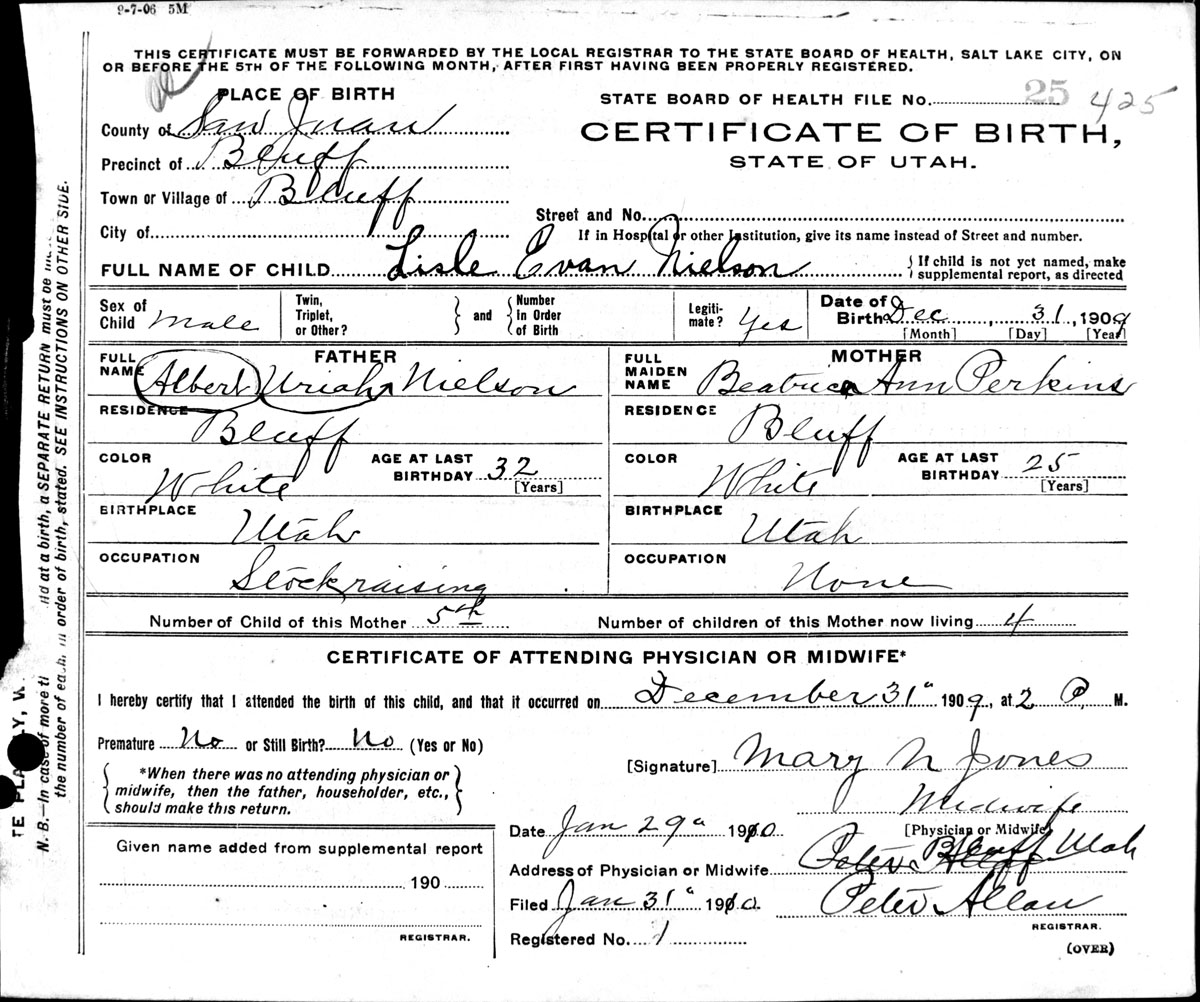 9-7-06 5M
THIS CERTIFICATE MUST BE FORWARDED BY THE LOCAL REGISTRAR TO THE STATE BOARD OF HEALTH, SALT LAKE CITY, ON
OR BEFORE THE 5TH OF THE FOLLOWING MONTH, AFTER FIRST HAVING BEEN PROPERLY REGISTERED.
PLACE OF BIRTH
County of San Juan
Precinct of Bluff
Town or Village of Bluff
City of
STATE BOARD OF HEALTH FILE No. 25 425
CERTIFICATE OF BIRTH,
STATE OF UTAH.
Street and No.
If in Hospital or other Institution, give its name instead of Street and number.
FULL NAME OF CHILD Lisle Evan Nielson { If child is not yet named, make
supplemental report, as directed
Sex of Child Male
Twin, Triplet, or Other? } and { Number In Order of Birth
Legiti- mate? Yes
Date of Birth Dec 31, 1909
[Month] [Day] [Year]
FATHER
FULL NAME Albert Uriah Nielson
RESIDENCE Bluff
COLOR White
AGE AT LAST BIRTHDAY 32
[Years]
BIRTHPLACE Utah
OCCUPATION Stockraising
MOTHER
FULL MAIDEN NAME Beatrice Ann Perkins
RESIDENCE Bluff
COLOR White
AGE AT LAST BIRTHDAY 25
[Years]
BIRTHPLACE Utah
OCCUPATION None
Number of Child of this Mother 5th
Number of children of this Mother now living 4
CERTIFICATE OF ATTENDING PHYSICIAN OR MIDWIFE*
I hereby certify that I attended the birth of this child, and that it occurred on December 31" 1909, at 2 P. M.
Premature No or Still Birth? No (Yes or No)
{ *When there was no attending physician or
midwife, then the father, householder, etc.,
should make this return. }
[Signature] Mary N Jones
Midwife
[Physician or Midwife]
Date Jan 29" 1910
Address of Physician or Midwife Bluff Utah
Filed Jan 31" 1910. Peter Allan
REGISTRAR.
Registered No. 1
(OVER)
Given name added from supplemental report
190
REGISTRAR.
N. B.—In case of more
at a birth, a SEPARATE RETURN must be
the number of each, in order of birth, stated. SEE INSTRUCTIONS ON OTHER SIDE.